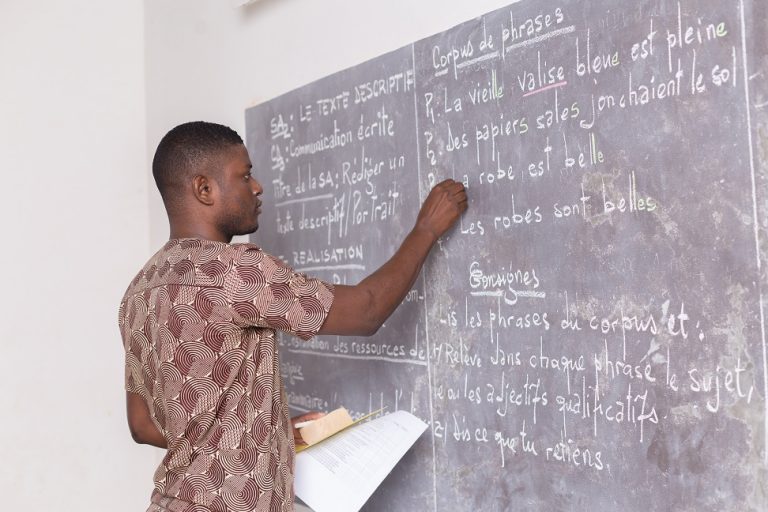 SA2: LE TEXTE DESCRIPTIF
SA: Communication écrite
titre de la SA: Rédiger un
texte descriptif / Portrait
REALISATION
des ressources de
l'accord de l'
Corpus de phrases
P1: La vieille valise bleue est pleine
P2: Des papiers sales jonchaient le sol
La robe est belle
Les robes sont belles
Consignes
Lis les phrases du corpus et :
1/ Relève dans chaque phrase le sujet,
le ou les adjectifs qualificatifs.
2/ Dis ce que tu retiens.